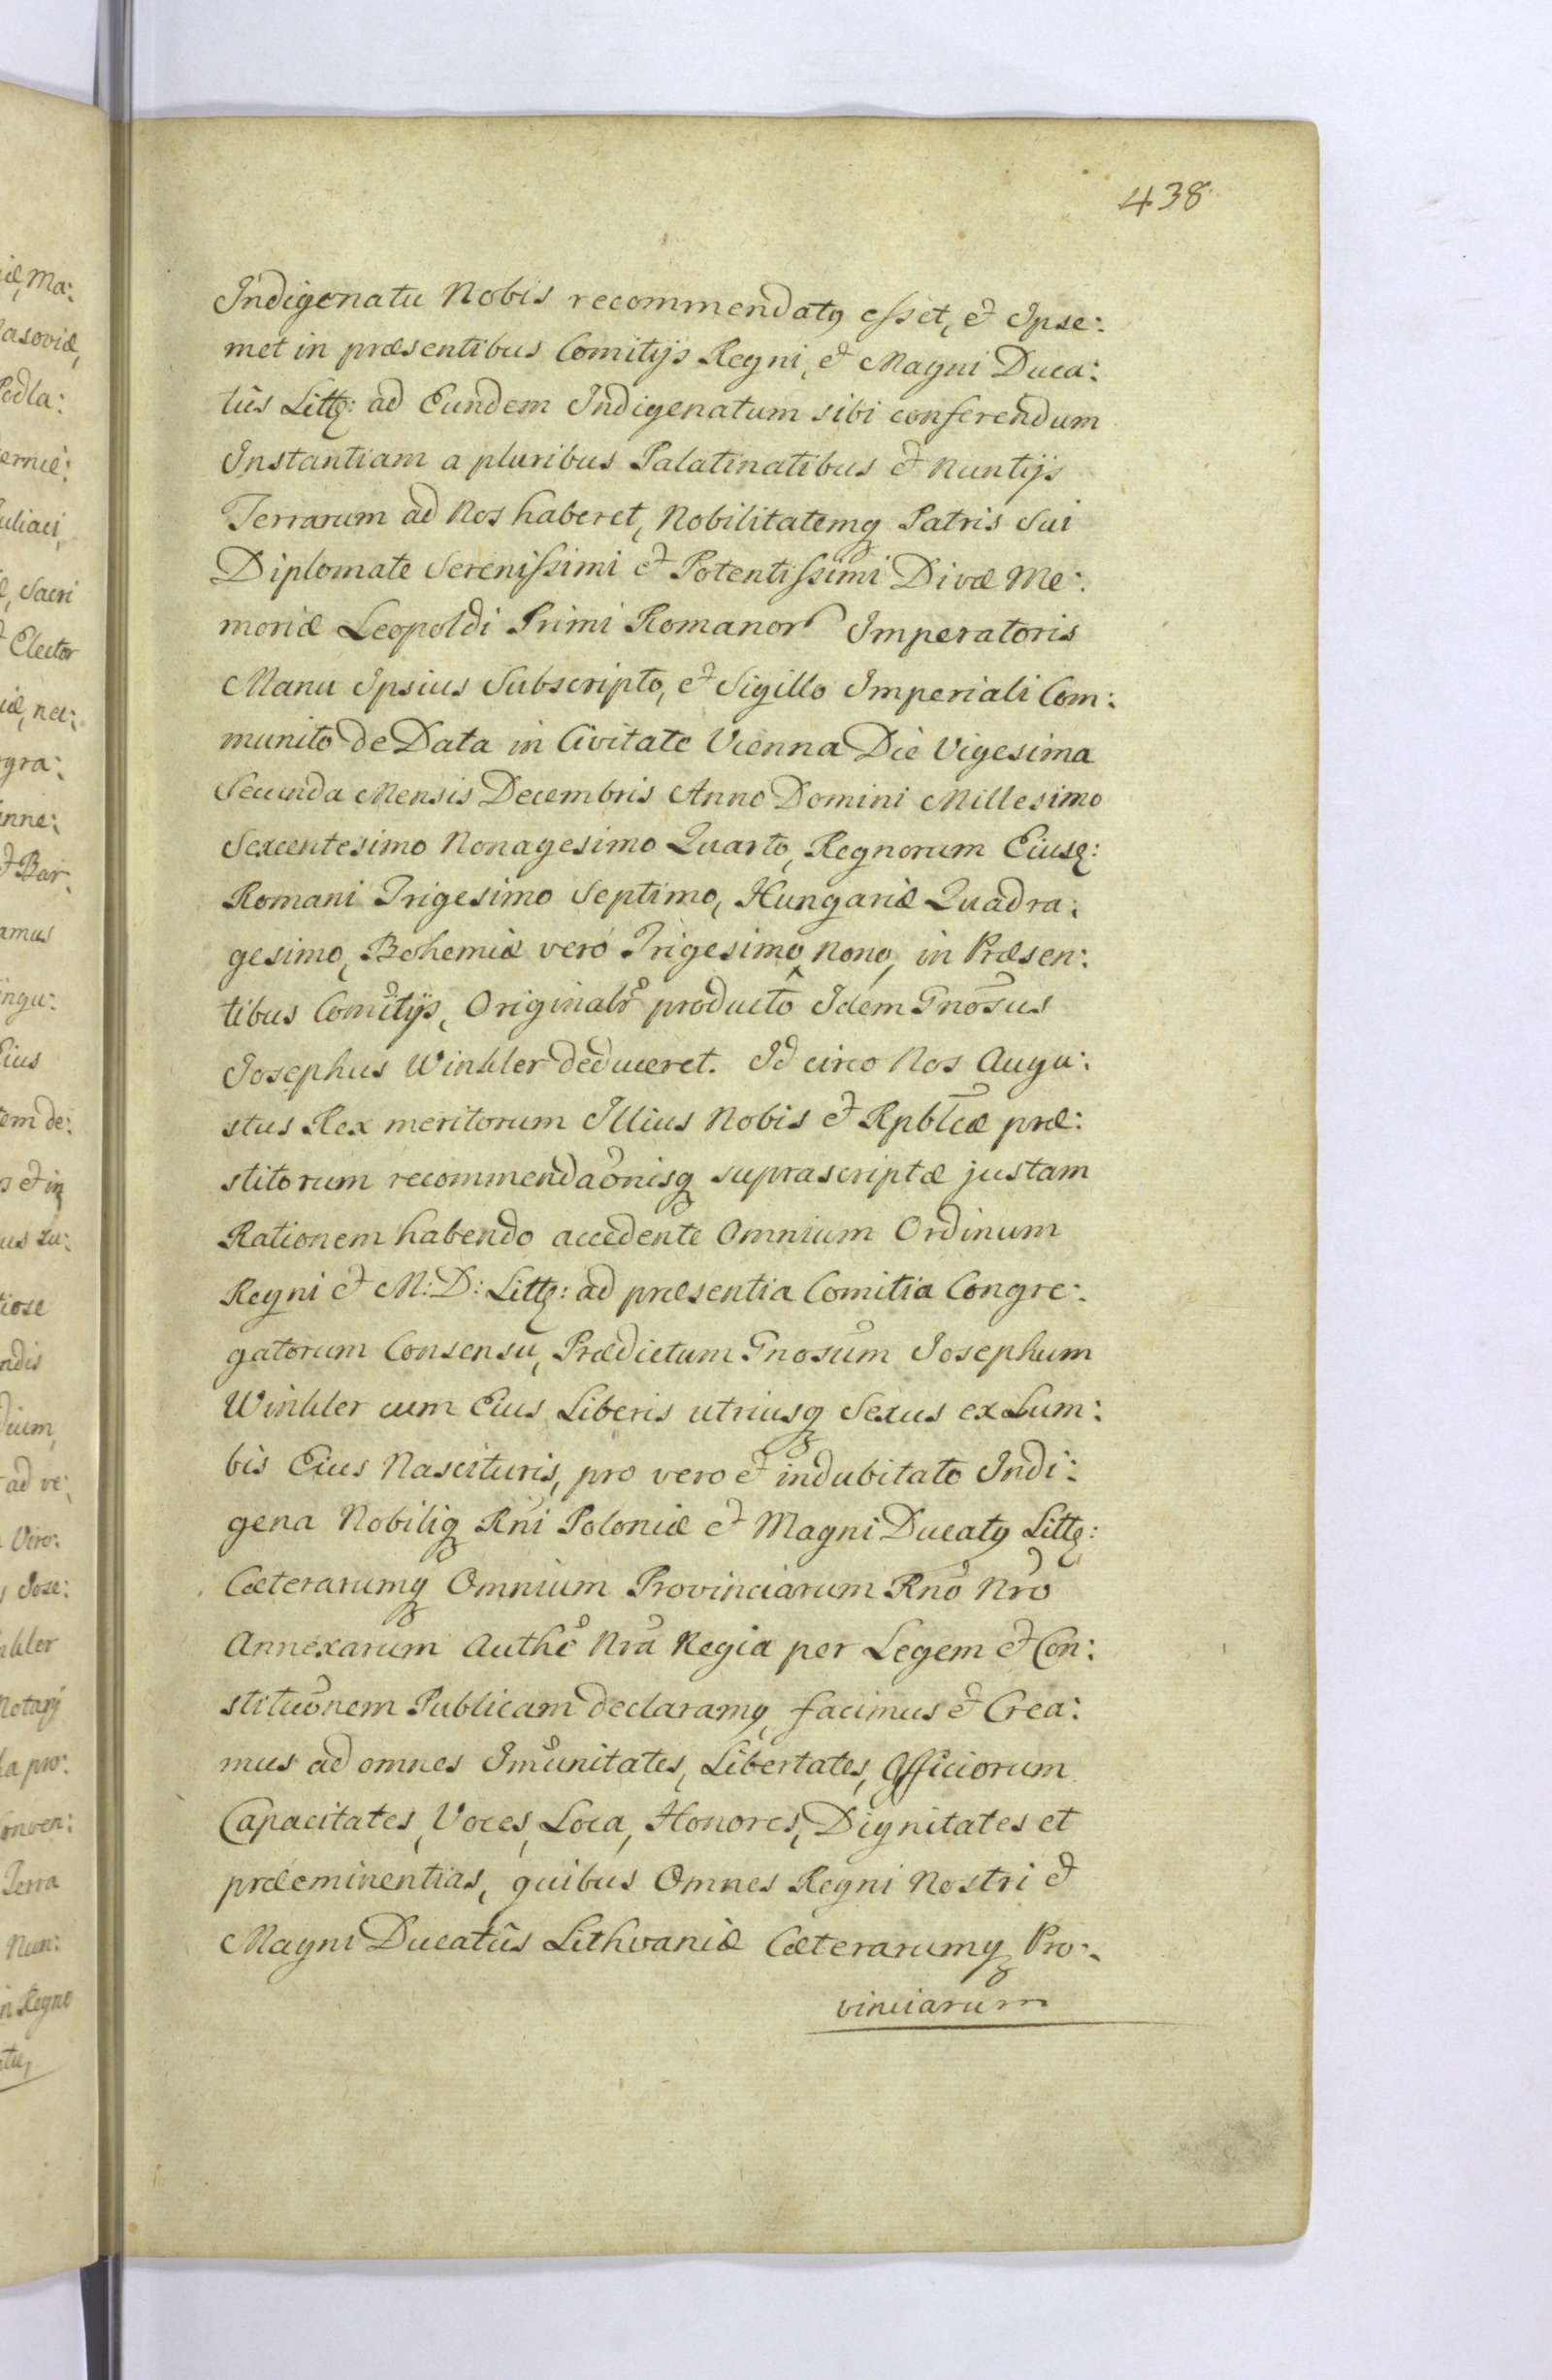 438
Indigenatu Nobis recommendatq esset, et Ipse:
met in præsentibus Comitijs Regni, et Magni Duca:
tûs Littz: ad Eundem Indigenatum sibi conferendum
Instantiam a pluribus Palatinatibus et Nuntijs
Terrarum ad Nos haberet, Nobilitatemq Patris Sui
Diplomate Serenissimi et Potentissimi Divæ Me:
moriæ Leopoldi Primi Romanor Imperatoris
Manu Ipsius Subscripto, et Sigillo Imperiali Com:
munito de Data in Civitate Vienna Die Vigesima
Secunda Mensis Decembris Anno Domini Millesimo
Sexcentesimo Nonagesimo Quarto, Regnorum Eiusq:
Romani Trigesimo Septimo, Hungariæ Quadra:
gesimo, Bohemiæ vero Trigesimo Nono, in Præsen:
tibus Comitijs, Originalr producto Idem Gnosus
Josephus Winkler deduceret. Id circo Nos Augu:
stus Rex meritorum Illius Nobis et Rpblcæ præ:
stitorum recommendaonisq suprascriptæ justam
Rationem habendo accedente Omnium Ordinum
Regni et M: D: Littz: ad præsentia Comitia Congre:
gatorum Consensu, Prædictum Gnosum Josephum
Winkler cum Eius Liberis utriusq Sexus ex Lum:
bis Eius Nascituris, pro vero et indubitato Indi:
gena Nobiliq Rni Poloniæ et Magni Ducatq Littz:
Cæterarumq Omnium Provinciarum Rno Nro
Annexarum Authe Nra Regia per Legem et Con:
stituonem Publicam declaramq, facimus et Crea:
mus ad omnes Imunitates, Libertates, Officiorum
Capacitates, Voces, Loca, Honores, Dignitates et
præeminentias, quibus Omnes Regni Nostri et
Magni Ducatûs Lithvaniæ Cæterarumq Pro:
vinciarum